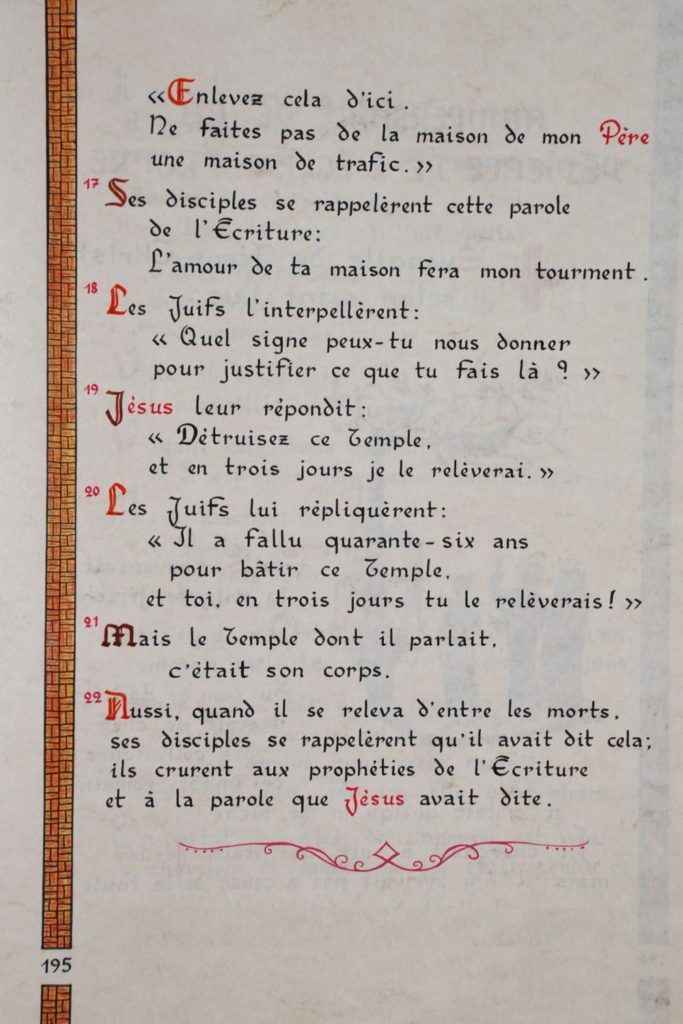 «Enlevez cela d'ici.
Ne faites pas de la maison de mon Père
une maison de trafic.»
17 Ses disciples se rappelèrent cette parole
de l'Écriture:
L'amour de ta maison fera mon tourment.
18 Les Juifs l'interpellèrent:
« Quel signe peux-tu nous donner
pour justifier ce que tu fais là ? »
19 Jésus leur répondit:
« Détruisez ce Temple,
et en trois jours je le relèverai. »
20 Les Juifs lui répliquèrent:
« Il a fallu quarante-six ans
pour bâtir ce Temple,
et toi, en trois jours tu le relèverais! »
21 Mais le Temple dont il parlait,
c'était son corps.
22 Aussi, quand il se releva d'entre les morts,
ses disciples se rappelèrent qu'il avait dit cela;
ils crurent aux prophéties de l'Écriture
et à la parole que Jésus avait dite.
195